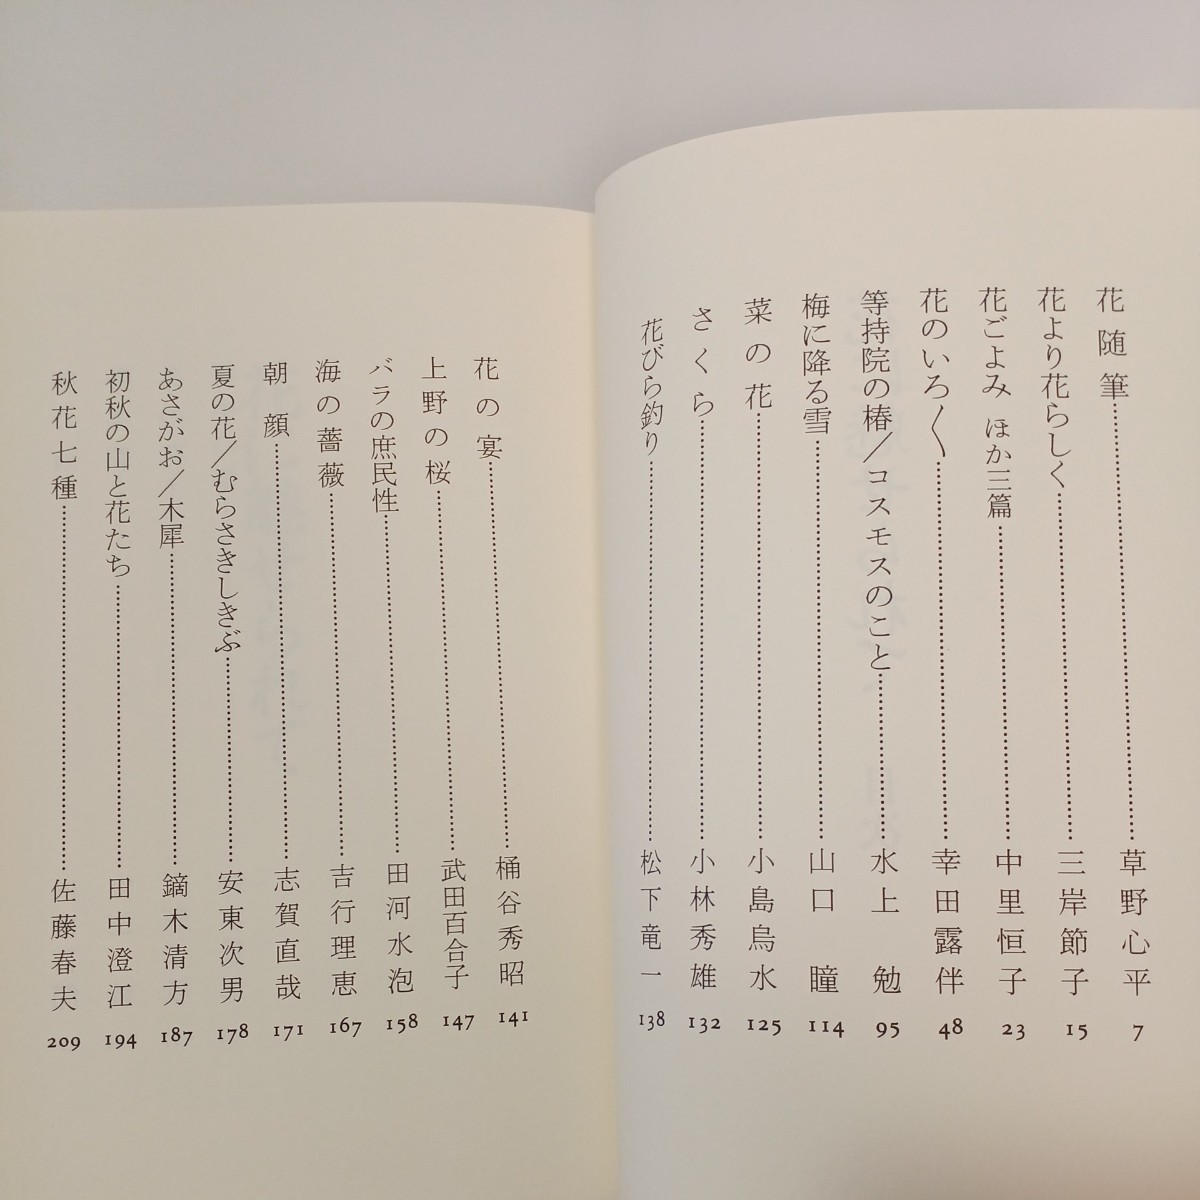 花随筆……草野心平 7
花より花らしく……三岸節子 15
花ごよみ ほか三篇……中里恒子 23
花のいろ〱……幸田露伴 48
等持院の椿／コスモスのこと……水上勉 95
梅に降る雪……山口瞳 114
菜の花……小島烏水 125
さくら……小林秀雄 132
花びら釣り……松下竜一 138
花の宴……桶谷秀昭 141
上野の桜……武田百合子 147
バラの庶民性……田河水泡 158
海の薔薇……吉行理恵 167
朝顔……志賀直哉 171
夏の花／むらさきしきぶ……安東次男 178
あさがお／木犀……鏑木清方 187
初秋の山と花たち……田中澄江 194
秋花七種……佐藤春夫 209